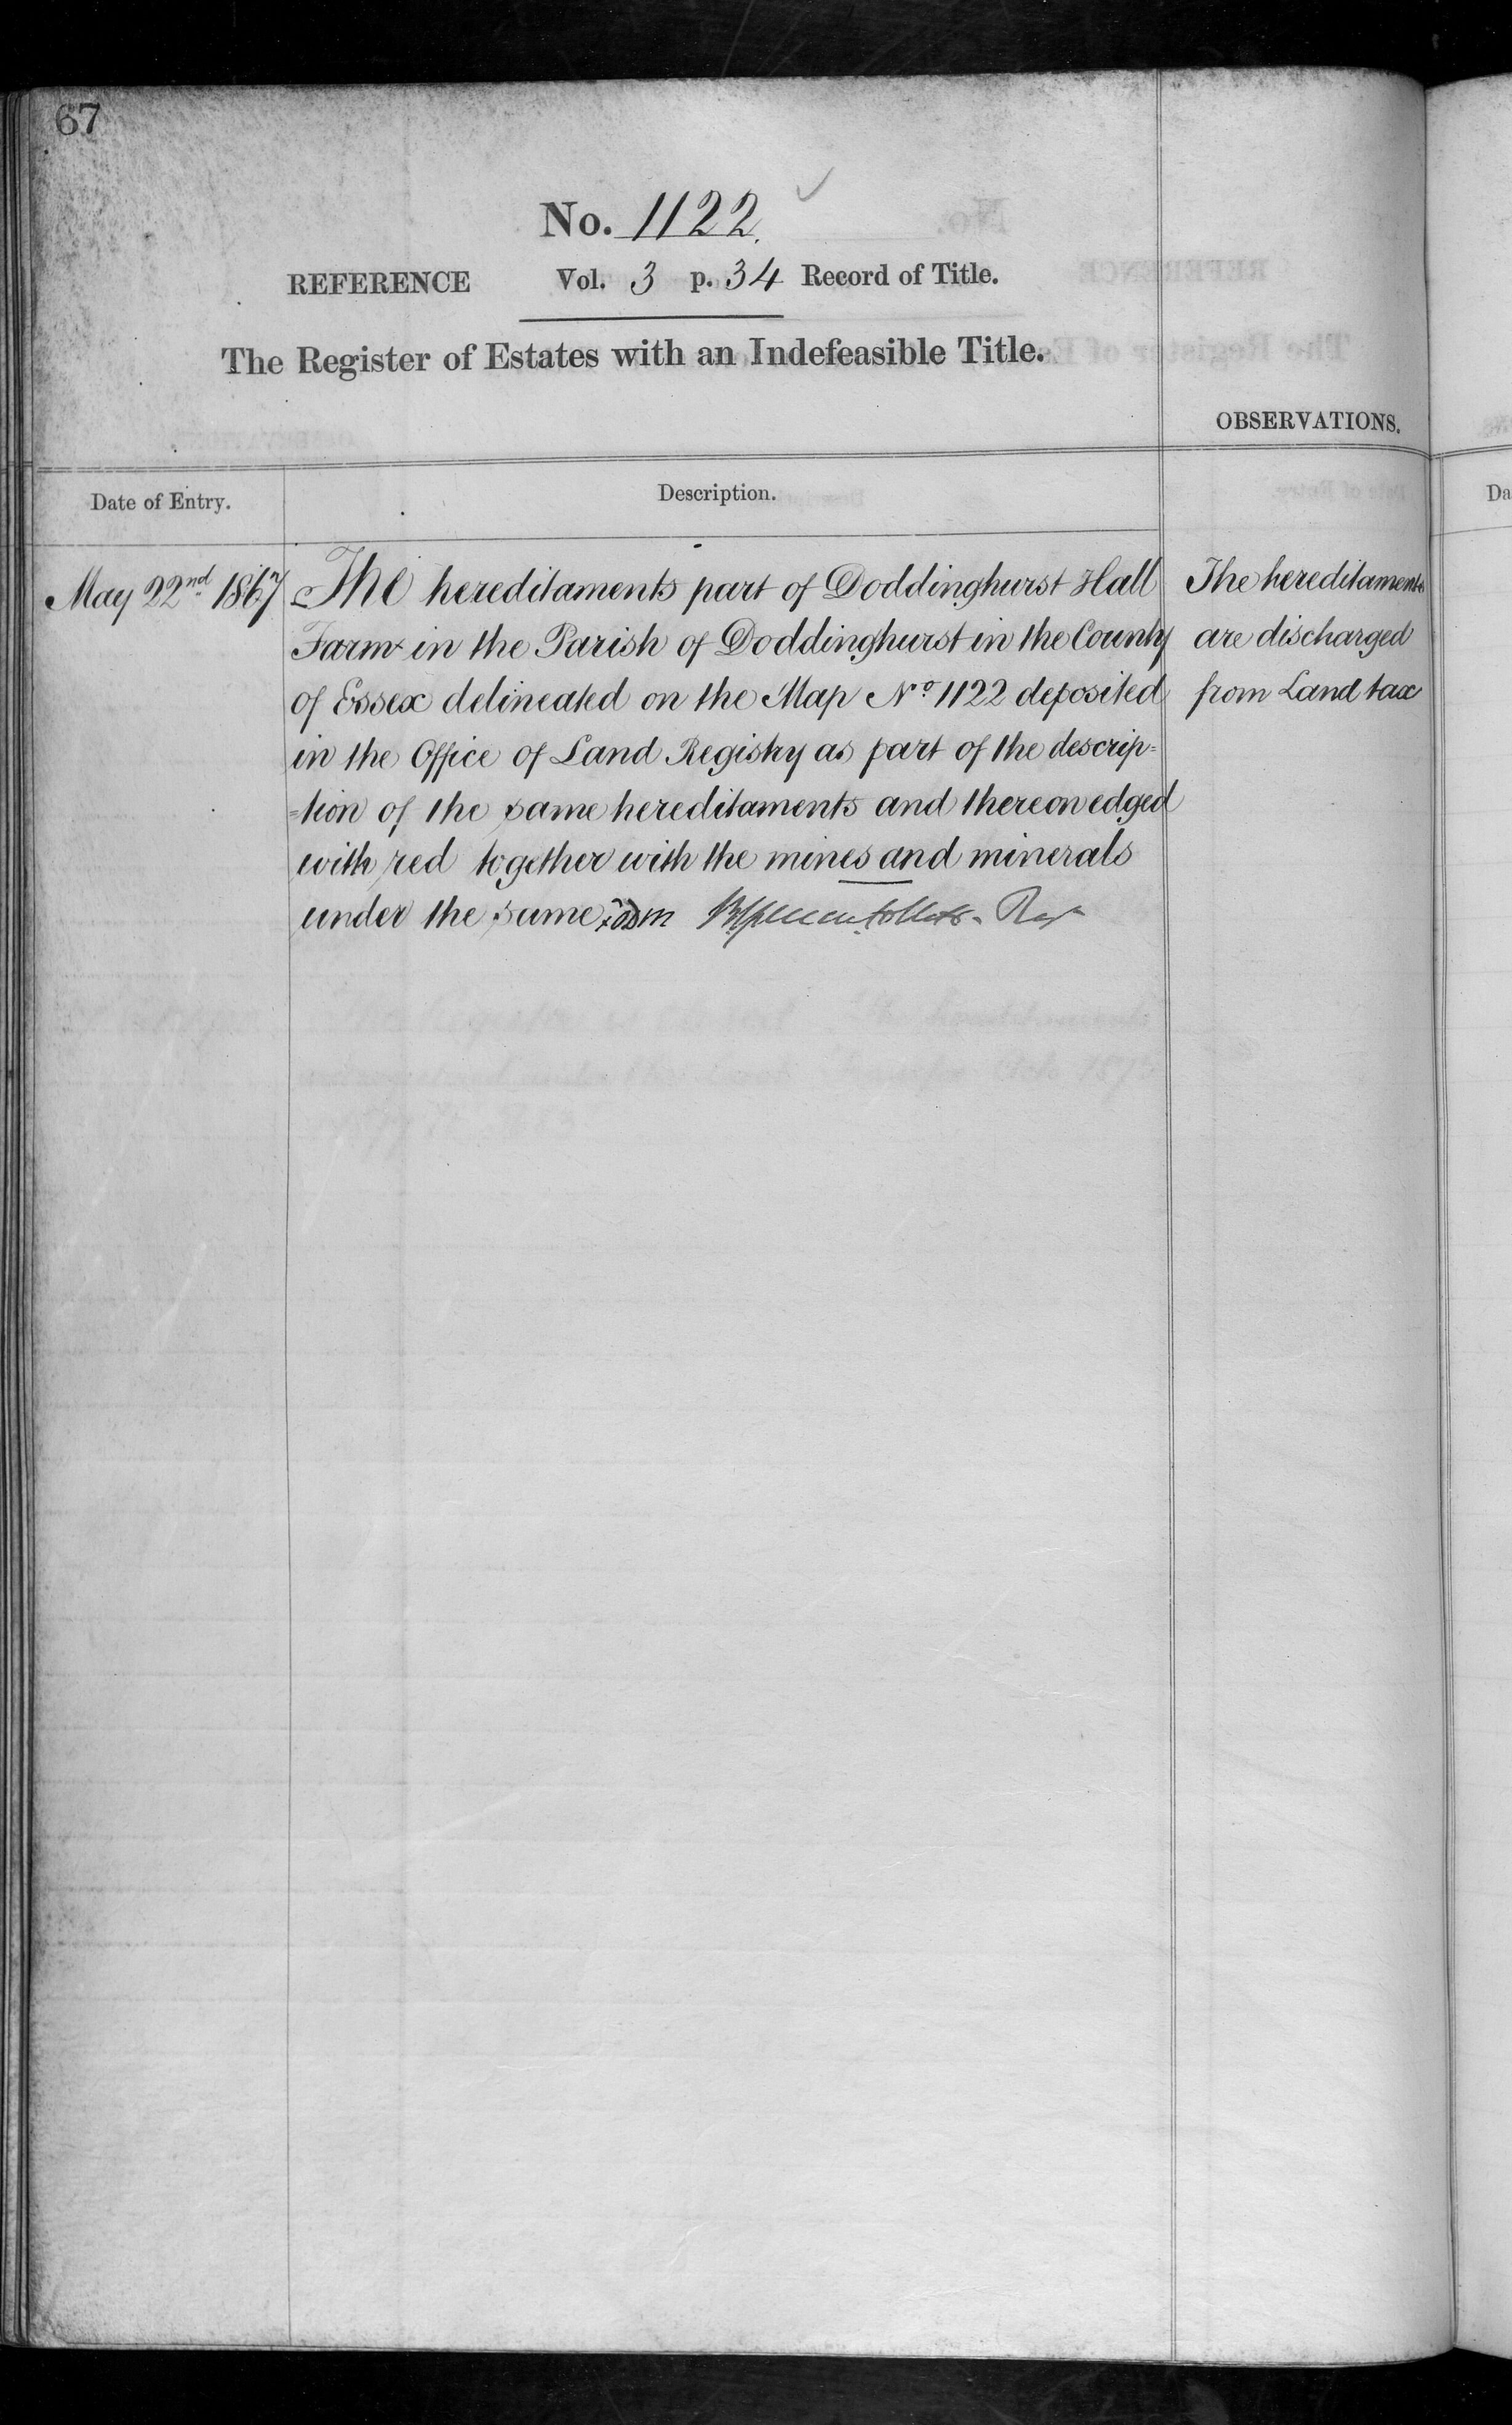 67
No. 1122.
REFERENCE Vol. 3 p. 34 Record of Title.
The Register of Estates with an Indefeasible Title.
OBSERVATIONS.
Date of Entry. Description.
May 22nd 1867 The hereditaments part of Doddinghurst Hall
Farm in the Parish of Doddinghurst in the County
of Essex delineated on the Map No 1122 deposited
in the Office of Land Registry as part of the descrip=
=tion of the same hereditaments and thereon edged
with red together with the mines and minerals
under the same
The hereditaments
are discharged
from Land tax
Da